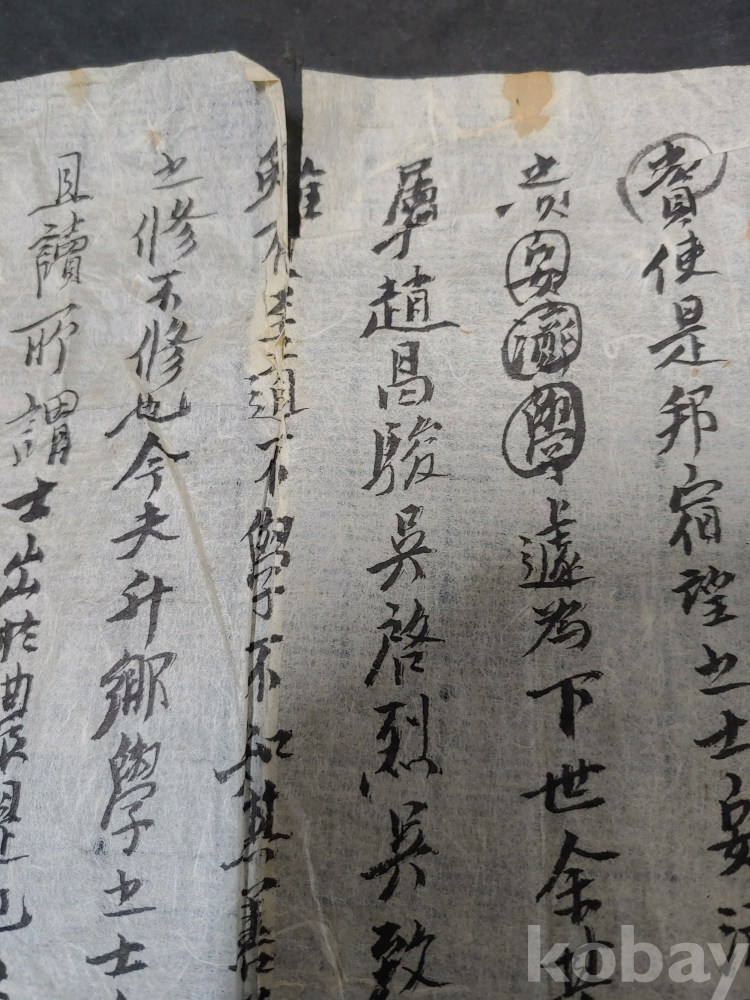 賁使是邦宿望之士安
之責安瀜學遽為下世余
孱趙昌駿吳啓烈吳致
雖有至道不學不知其善
之修不修也今夫升鄉學之士
且讀所謂士出於曲
kobay